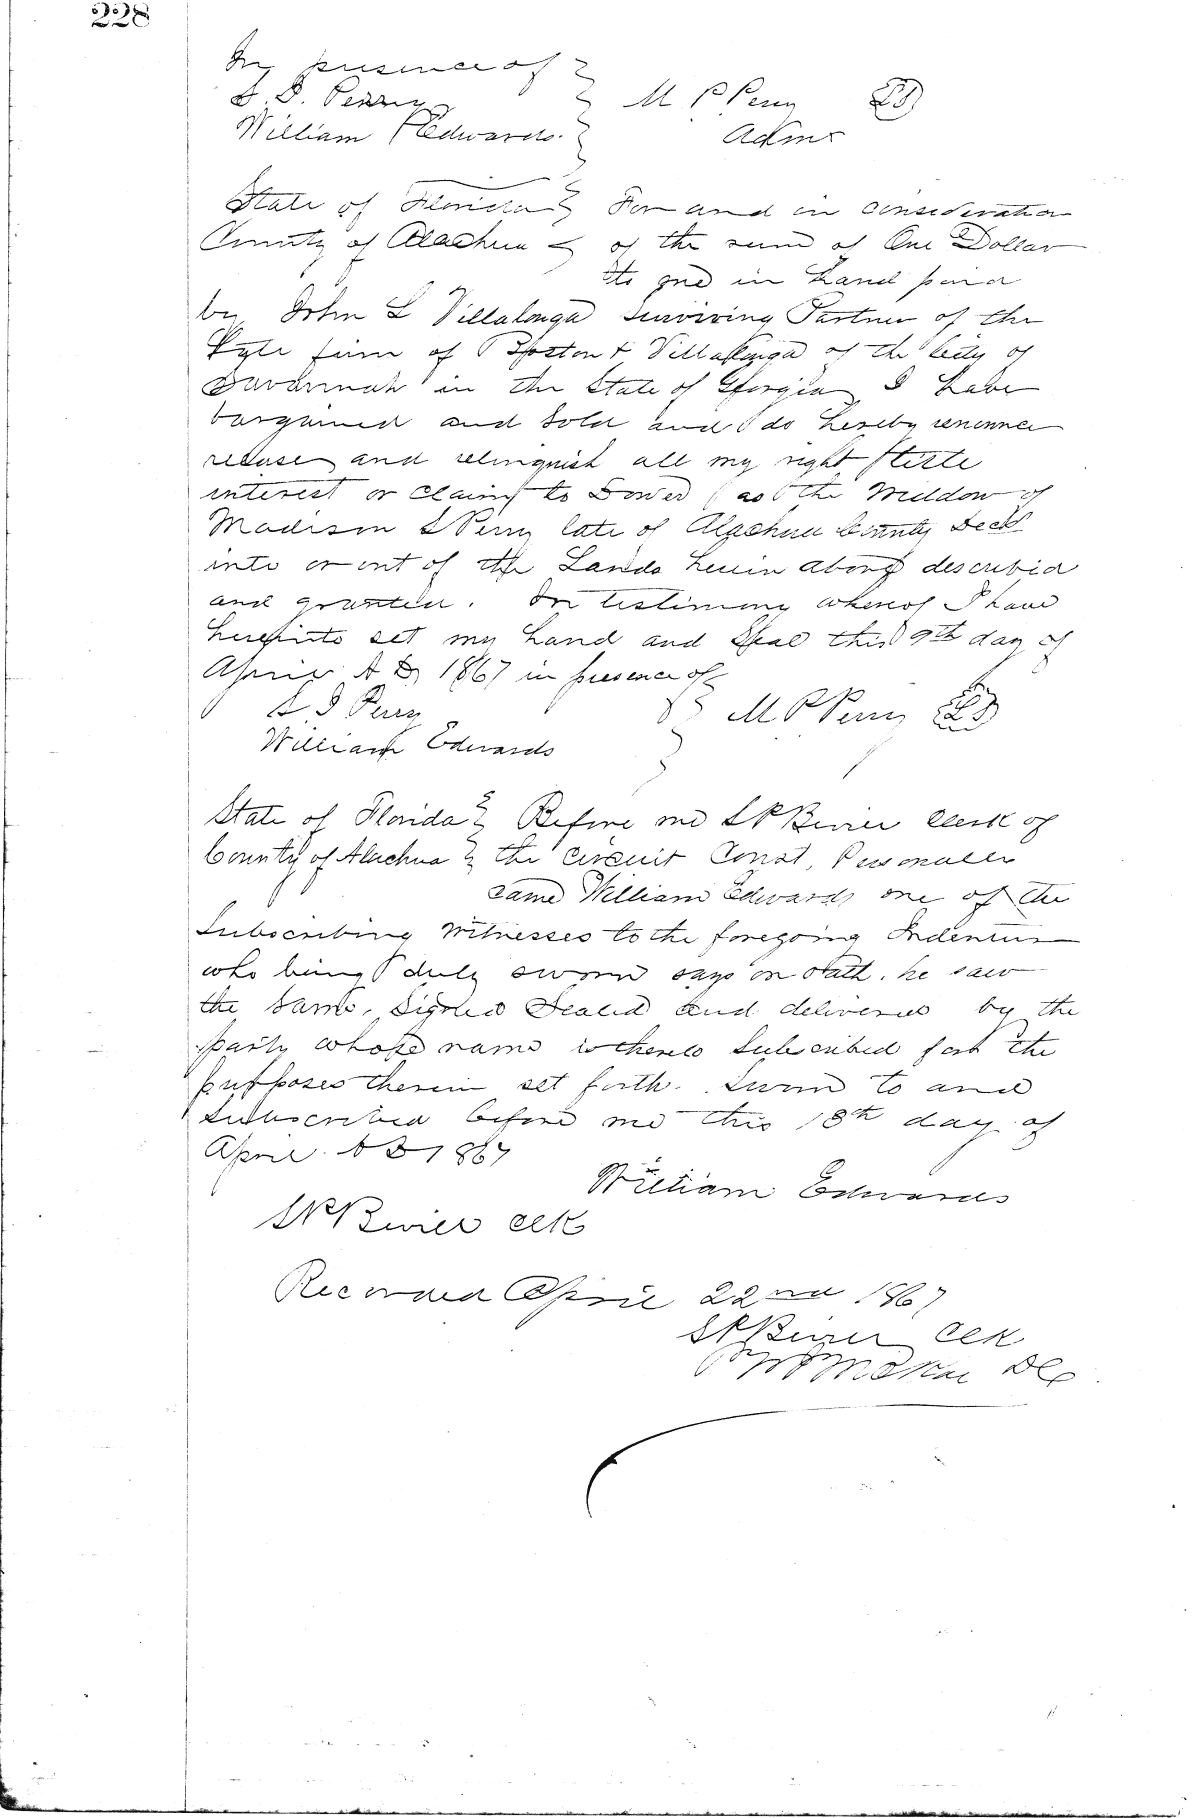 228
In presence of
S. D. Perry M P Perry LS
William Edwards. Admr
State of Florida For and in consideration
County of Alachua of the sum of One Dollar
to me in hand paid
by John L Villalonga surviving Partner of the
late firm of Boston & Villalonga of the City of
Savannah in the State of Georgia I have
bargained and sold and do hereby renounce
release and relinquish all my right title
interest or claim to Dower as the Widdow of
Madison S Perry late of Alachua County Decd
into or out of the Lands herein above described
and granted. In testimony whereof I have
hereinto set my hand and Seal this 9th day of
April A D 1867 in presence of
S D Perry M P Perry LS
William Edwards
State of Florida Before me Clerk of
County of Alachua the Circuit Court, Personally
came William Edwards one of the
Subscribing Witnesses to the foregoing Indenture
who being duly sworn says on oath. he saw
the same, Signed Sealed and delivered by the
party whose name is thereto Subscribed for the
purposes therein set forth. Sworn to and
Subscribed before me this 18th day of
April A D 1867
William Edwards
Clk
Recorded April 22nd 1867
Clk
DC